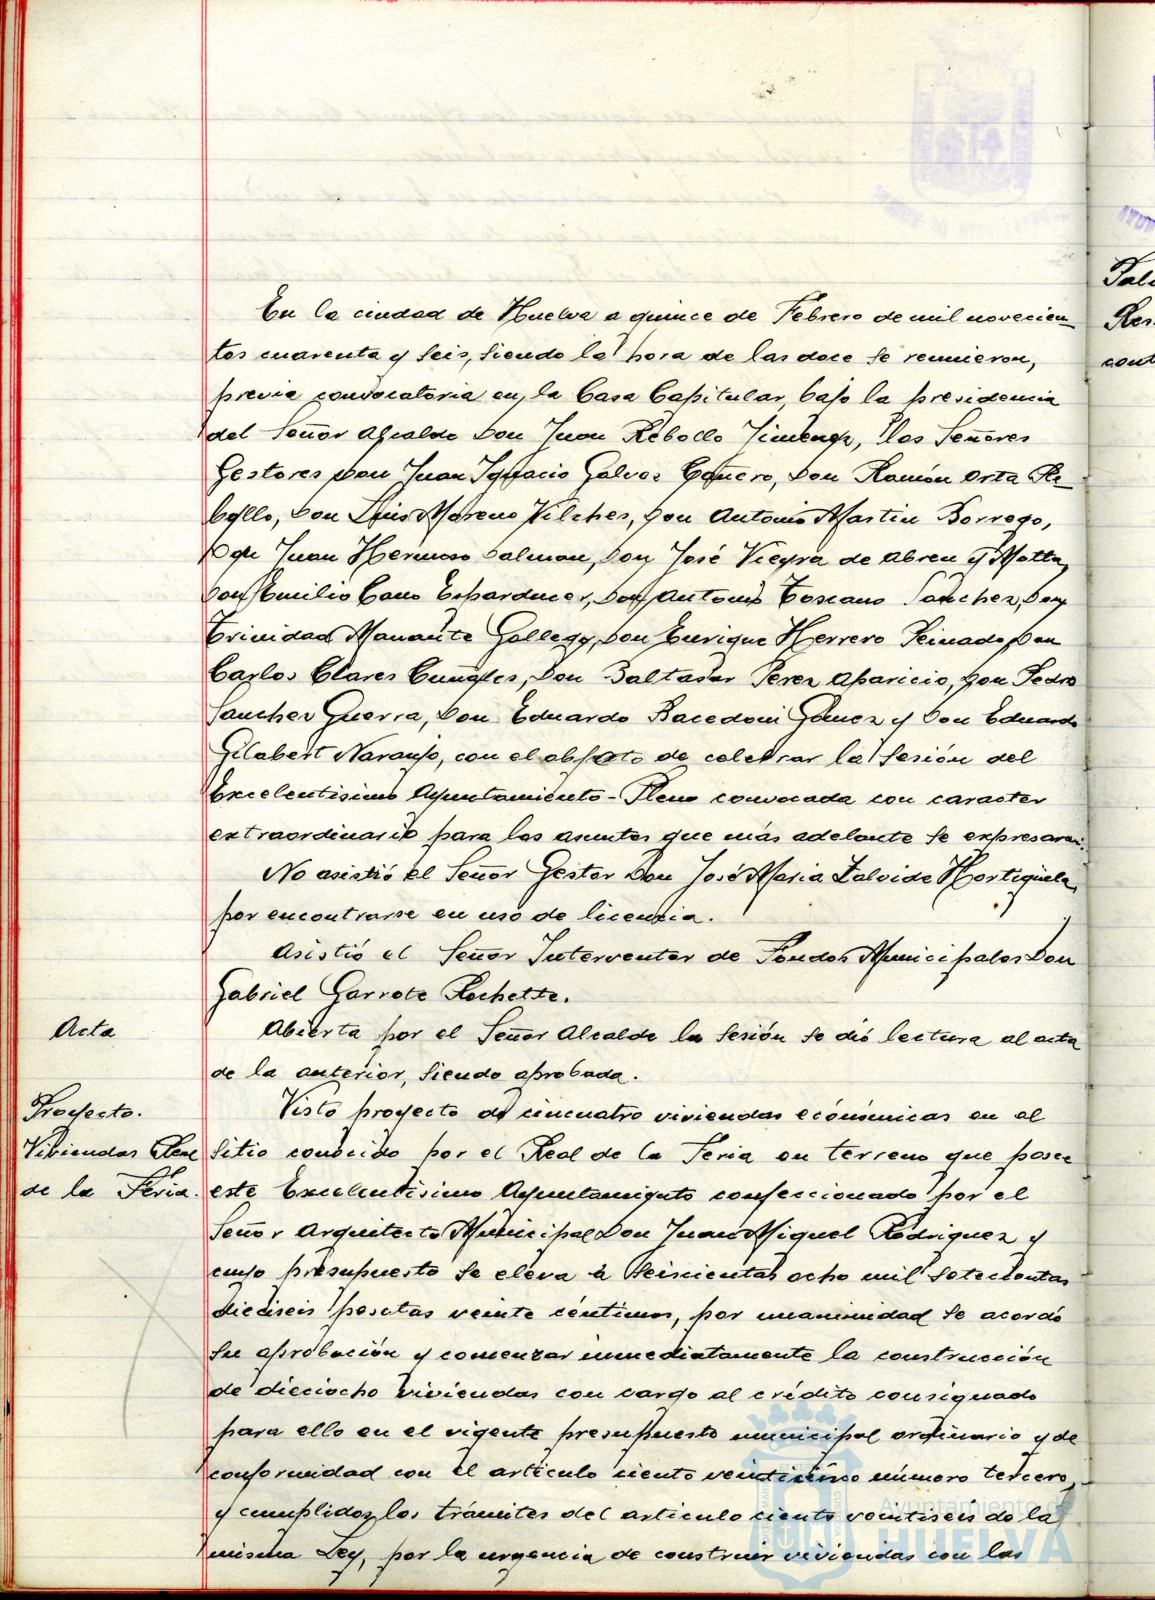 En la ciudad de Huelva a quince de Febrero de mil novecien-
tos cuarenta y seis, siendo la hora de las doce se reunieron,
previa convocatoria en la Casa Capitular, bajo la presidencia
del Señor Alcalde Don Juan Rebollo Jimenez, los Señores
Gestores Don Juan Ignacio Galvez Cañero, Don Ramón Orta Re-
bollo, Don Luis Moreno Vilches, Don Antonio Martin Borrego,
Don Juan Hermoso Dalman, Don José Vieyra de Abreu y Motta,
Don Emilio Cano Don Antonio Toscano Sanchez, Don
Trinidad Gallego, Don Enrique Herrero Peinado, Don
Carlos Clares Don Baltasar Perez Aparicio, Don Pedro
Sanchez Guerra, Don Eduardo Bacedoni Gómez y Don Eduardo
Gilabert Naranjo, con el objeto de celebrar la sesión del
Excelentisimo Ayuntamiento-Pleno convocada con caracter
extraordinario para los asuntos que más adelante se expresaran.
No asistió el Señor Gestor Don José Maria Zalvide Hortigüela,
por encontrarse en uso de licencia.
Asistió el Señor Interventor de Fondos Municipales Don
Gabriel Garrote Rochette.
Acta
Abierta por el Señor Alcalde la sesión se dió lectura al acta
de la anterior, siendo aprobada.
Proyecto.
Viviendas Real
de la Feria.
Visto proyecto de cincuatro viviendas económicas en el
sitio conocido por el Real de la Feria en terreno que posee
este Excelentísimo Ayuntamiento confeccionado por el
Señor Arquitecto Municipal Don Juan Miguel Rodriguez y
cuyo presupuesto se eleva a seiscientas ocho mil setecientas
dieciseis pesetas veinte céntimos, por unanimidad se acordó
su aprobación y comenzar inmediatamente la construcción
de dieciocho viviendas con cargo al crédito consignado
para ello en el vigente presupuesto municipal ordinario y de
conformidad con el artículo ciento veinticinco número tercero,
y cumplidos los trámites del artículo ciento veintiseis de la
misma Ley, por la urgencia de construir viviendas con las
Ayuntamiento de
HUELVA